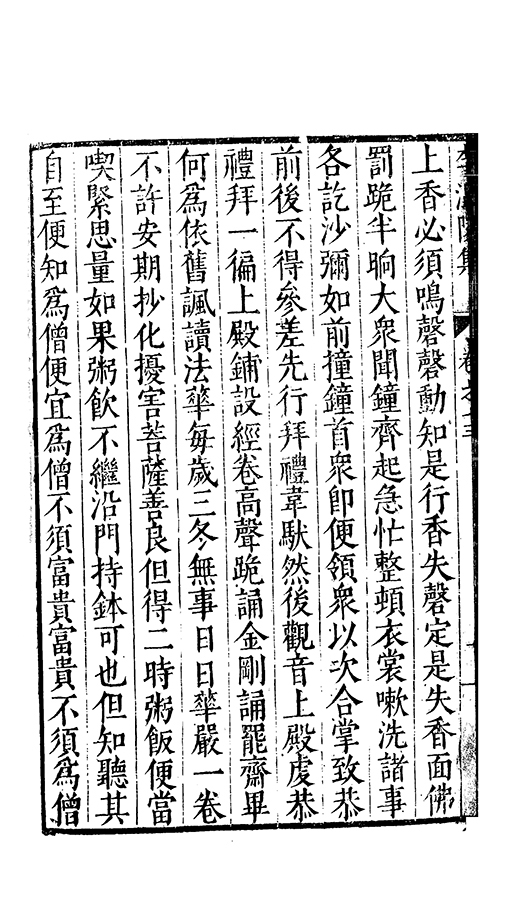 卷之三
上香必須鳴磬磬動知是行香失磬定是失香面佛
罰跪半晌大衆聞鐘齊起急忙整頓衣裳嗽洗諸事
各訖沙彌如前撞鐘首衆即便領衆以次合掌致恭
前後不得參差先行拜禮韋馱然後觀音上殿虔恭
禮拜一徧上殿鋪設經卷高聲跪誦金剛誦罷齋畢
何爲依舊諷讀法華每歲三冬無事日日華嚴一卷
不許安期抄化擾害菩薩善良但得二時粥飯便當
喫緊思量如果粥飲不繼沿門持鉢可也但知聽其
自至便知爲僧便宜爲僧不須富貴富貴不須爲僧